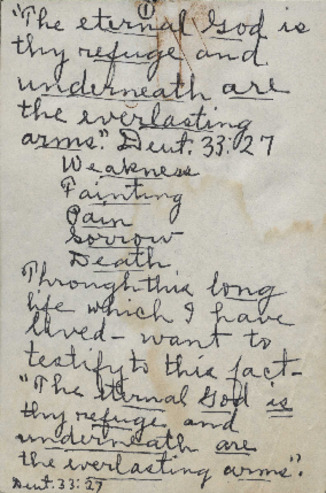 ①
"The eternal God is
thy refuge and
underneath are
the everlasting
arms." Deut. 33:27
Weakness
Fainting
Pain
Sorrow
Death
Through this long
life which I have
lived - want to
testify to this fact -
"The eternal God is
thy refuge and
underneath are
the everlasting arms".
Deut. 33:27